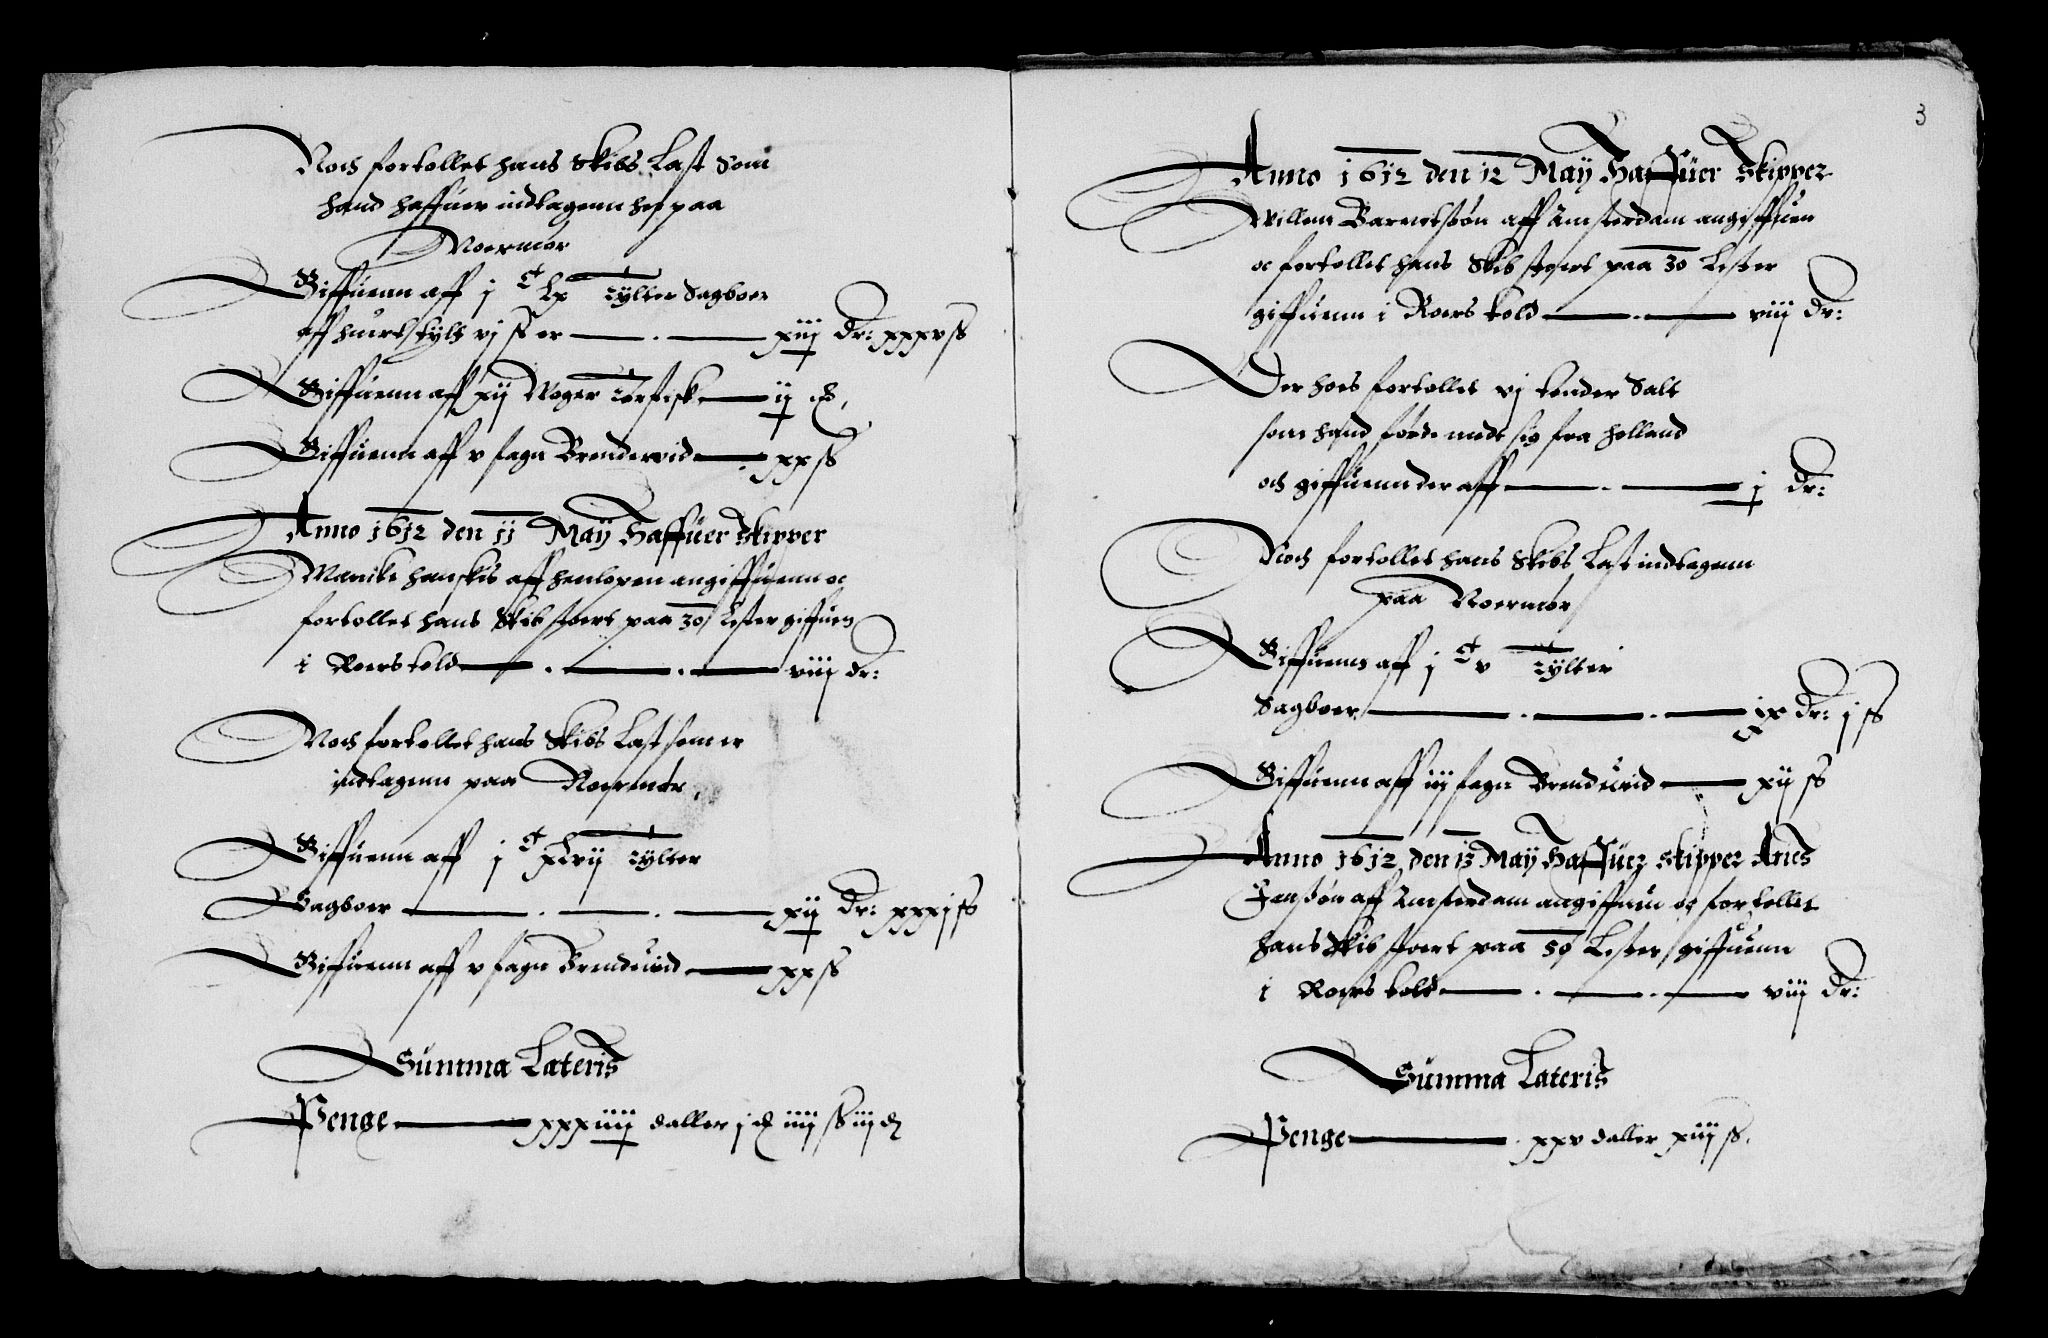 Noch fortollet hans Skibs Last Som
hand haffuer indtagenn her paa
Noermør
Giffuenn aff j C Lx tylter Sagboer
aff huert tylt vj ß er xiiij Dr: xxxv ß
Giffuenn aff xij Woger torfisk ij
Giffuenn aff v fagn Brendeved xx ß
Anno 1612 den 11 Maÿ Haffuer Skipper
aff angiffuenn oc
fortollet hans Skib stoert paa 30 Lester giffuen
i Roers told viij dr:
Noch fortollet hans Skibs Last som er
indtagenn paa Noermør
Giffuenn aff j C xLvij tylter
Sagboer xij Dr: xxxj ß
Giffuenn aff v fagn Brendeved xx ß
Summa Lateris
Penge xxxiiij daller j iiij ß iij
3
Anno 1612 den 12 Maÿ Haffuer Skipper
Willem Barnetsøn aff Amsterdam angiffuen
oc fortollet hans Skib stoert paa 30 Lester
giffuenn i Roers told viij Dr:
Der hoes fortollet vj tønder Salt
som hand førde medt sig fra Holland
och giffuenn der aff j Dr:
Noch fortollet hans Skibs Last indtagenn
paa Noermør
Giffuenn aff j C v tylter
Sagboer ix Dr: j ß
Giffuenn aff iij fagn Brendeved xij ß
Anno 1612 den 13 Maÿ Haffuer Skipper
Jansøn aff Amsterdam angiffuen oc fortollet
hans Skib stoert paa 30 Lester giffuenn
i Roers told viij Dr:
Summa Lateris
Penge xxv daller xiij ß